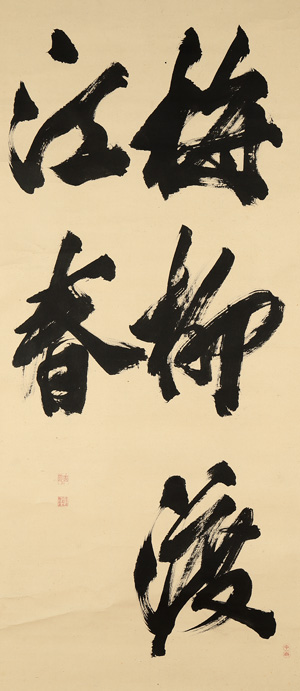 梅柳渡
江春